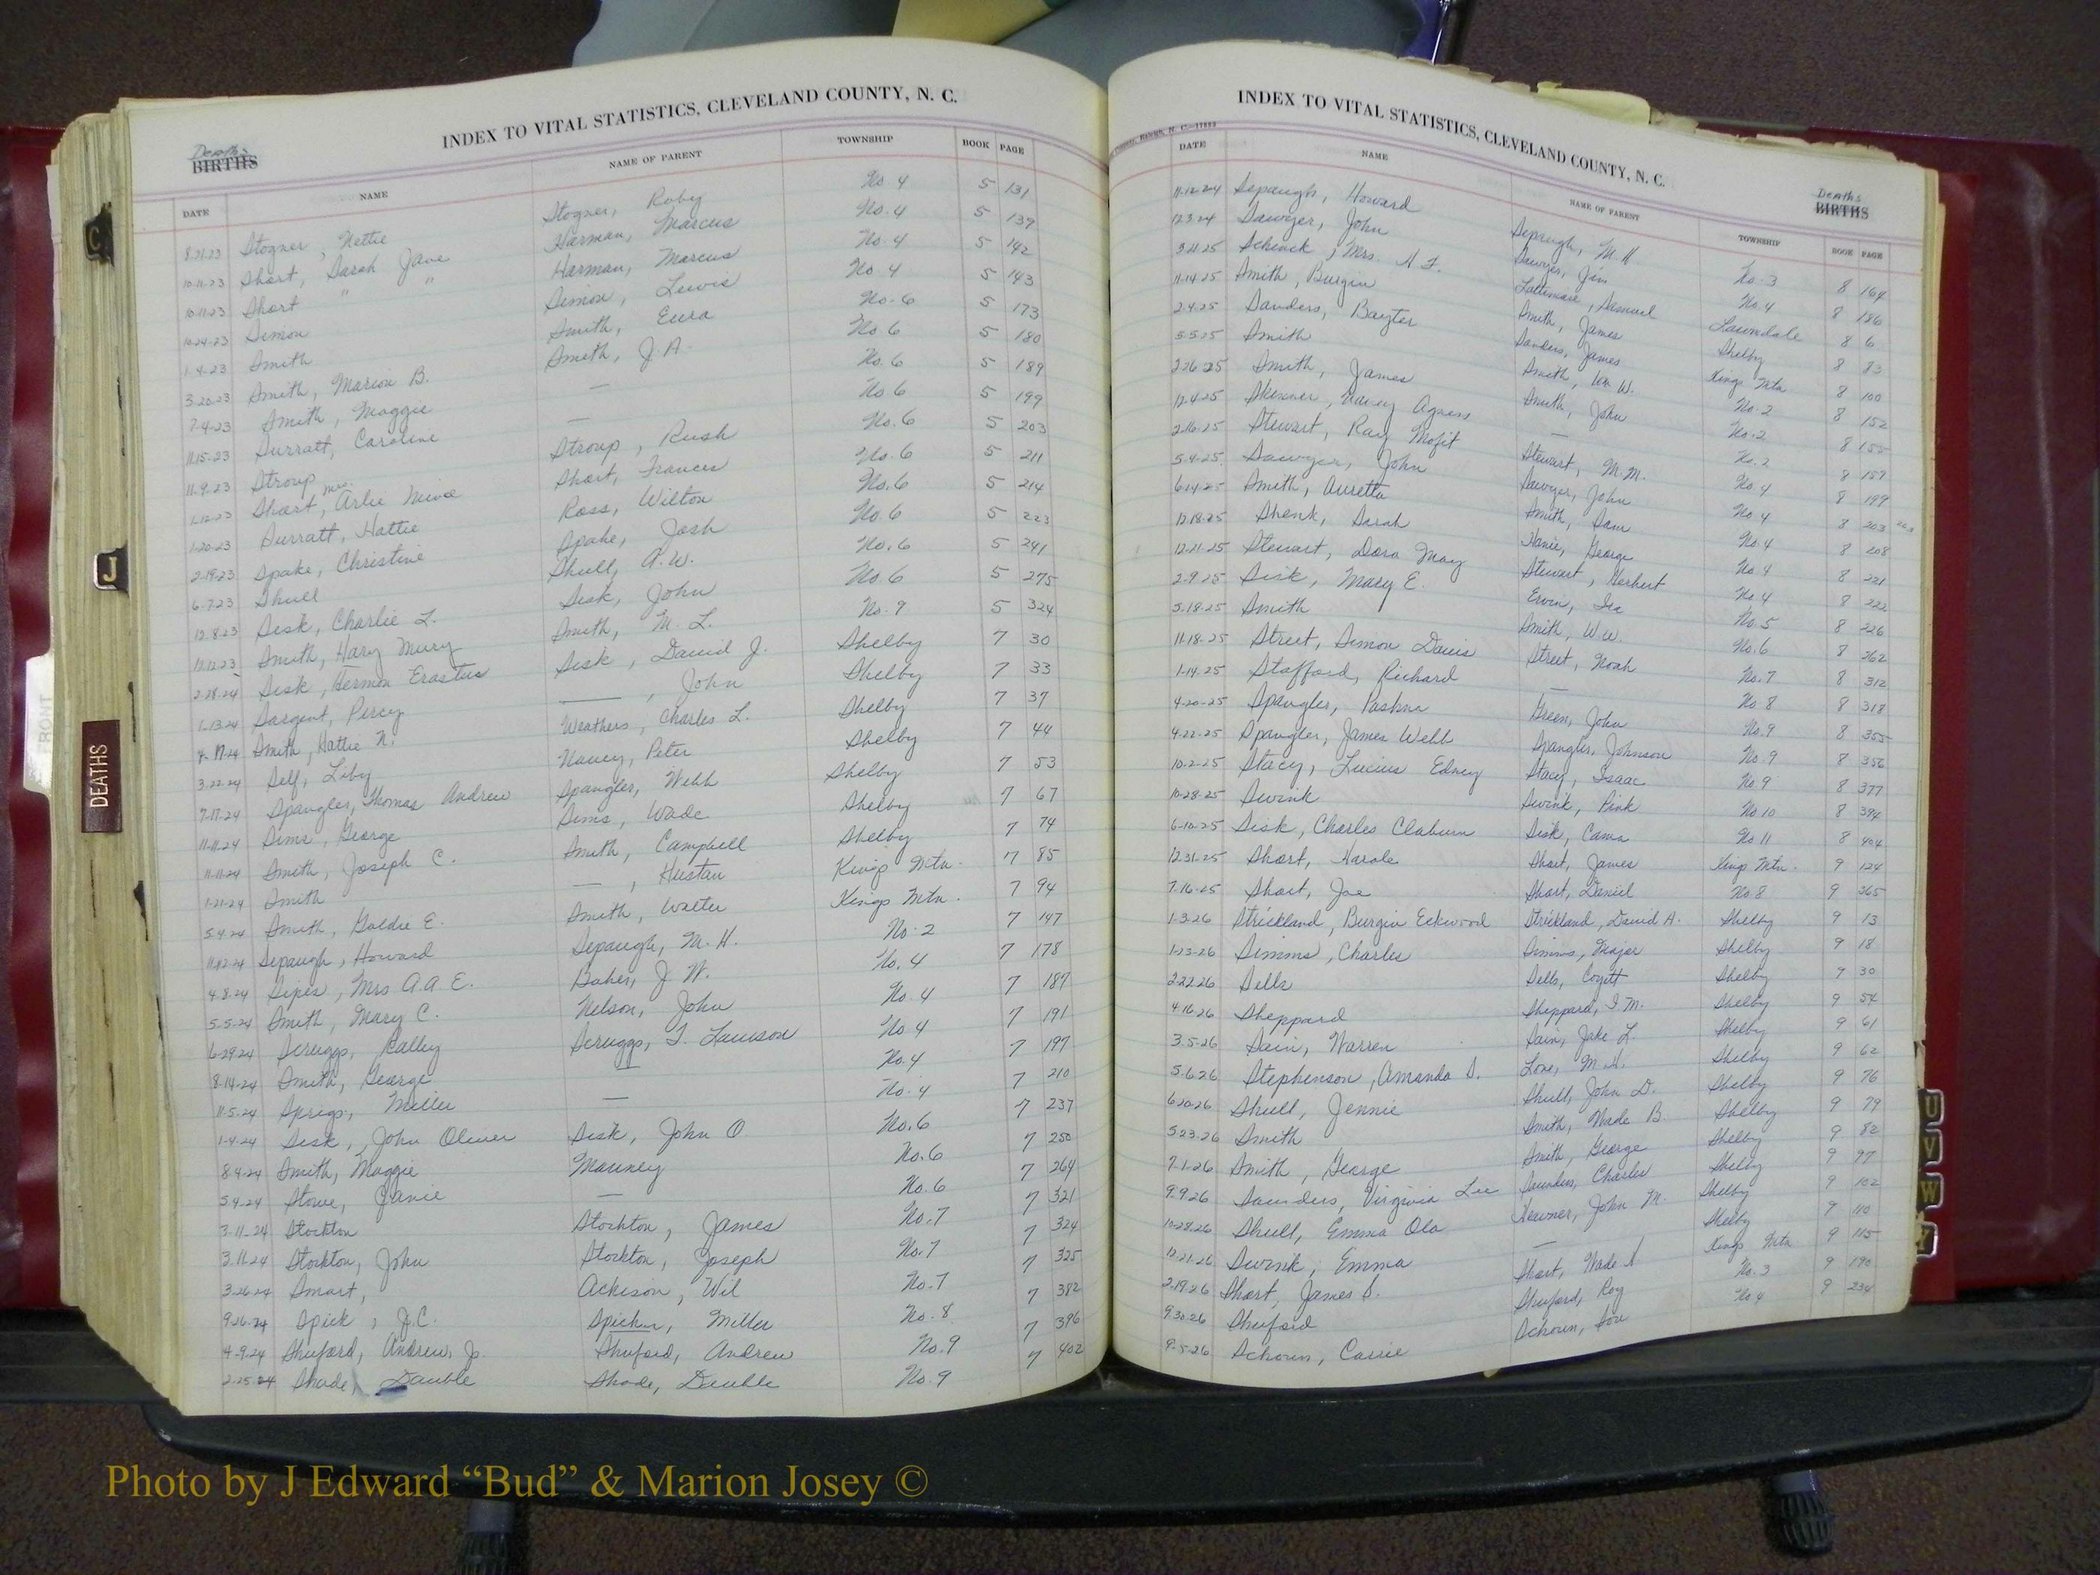 INDEX TO VITAL STATISTICS, CLEVELAND COUNTY, N. C.
Deaths
BIRTHS
DATE NAME NAME OF PARENT TOWNSHIP BOOK PAGE
8-21-23 Stogner, Nettie Stogner, Roby No. 4 5 131
10-11-23 Short, Sarah Jane Harman, Marcus No. 4 5 139
10-11-23 Short " " Harman, Marcus No. 4 5 142
10-24-23 Simon Simon, Lewis No. 4 5 143
1-4-23 Smith Smith, Eura No. 6 5 173
3-20-23 Smith, Marion B. Smith, J.A. No. 6 5 180
7-4-23 Smith, Maggie — No. 6 5 189
11-15-23 Surratt, Caroline — No. 6 5 199
11-9-23 Stroup Stroup, Rush No. 6 5 203
1-12-23 Short, Mrs. Arlie Short, Frances No. 6 5 211
1-20-23 Surratt, Hattie Ross, Wilton No. 6 5 214
2-19-23 Spake, Christine Spake, Josh No. 6 5 223
6-7-23 Shull Shull, A.W. No. 6 5 241
12-8-23 Sisk, Charlie L. Sisk, John No. 6 5 275
12-12-23 Smith, Hary Mury Smith, M. L. No. 9 5 324
2-28-24 Sisk, Hermon Erastus Sisk, David J. Shelby 7 30
1-13-24 Sargent, Percy — , John Shelby 7 33
4-17-24 Smith, Hattie N. Weathers, Charles L. Shelby 7 37
3-22-24 Self, Liby Peter Shelby 7 44
7-17-24 Spangler, Thomas Andrew Spangler, Webb Shelby 7 53
11-11-24 Sims, George Sims, Wade Shelby 7 67
11-11-24 Smith, Joseph C. Smith, Campbell Shelby 7 74
1-21-24 Smith — , Hustan Kings Mtn. 7 85
5-4-24 Smith, Goldie E. Smith, Walter Kings Mtn. 7 94
11-12-24 Sepaugh, Howard Sepaugh, M. H. No. 2 7 147
4-8-24 Sipes, Mrs A.A.E. Baker, J W. No. 4 7 178
5-5-24 Smith, Mary C. Nelson, John No. 4 7 187
6-29-24 Scruggs, Scruggs, T. Lawson No 4 7 191
8-14-24 Smith, George — No. 4 7 197
11-5-24 Sprigs, Miller — No. 4 7 210
1-4-24 Sisk, John Oliver Sisk, John O. No. 6 7 237
8-4-24 Smith, Maggie Mauney No. 6 7 250
5-4-24 Stowe, Janie — No. 6 7 264
3-11-24 Stockton Stockton, James No. 7 7 321
3-11-24 Stockton, John Stockton, Joseph No. 7 7 324
3-26-24 Smart, Ackison, Wil No. 7 7 325
9-26-24 Spick, J.C. Miller No. 8 7 382
4-9-24 Shuford, Andrew, Jr. Shuford, Andrew No. 9 7 396
2-25-24 Shade, Dauble Shade, Dauble No. 9 7 402
INDEX TO VITAL STATISTICS, CLEVELAND COUNTY, N. C.
Deaths
BIRTHS
DATE NAME NAME OF PARENT TOWNSHIP BOOK PAGE
11-12-24 Sepaugh, Howard Sepaugh, M. H. No. 3 8 164
12-3-24 Sawyer, John Sawyer, Jim No. 4 8 186
3-21-25 Schenck, Mrs. H. F. Lattimore, Samuel Lawndale 8 6
11-14-25 Smith, Burgin Smith, James Shelby 8 83
2-4-25 Sanders, Bayter Sanders, James Kings Mtn 8 100
5-5-25 Smith Smith, Wm W. No. 2 8 152
2-26-25 Smith, James Smith, John No. 2 8 155
12-4-25 Skinner, Nancy Agnes — No. 2 8 159
2-16-25 Stewart, Ray Mofit Stewart, M.M. No. 4 8 199
5-4-25 Sawyer, John Sawyer, John No. 4 8 203
6-14-25 Smith, Auretta Smith, Sam No. 4 8 208
12-18-25 Shenk, Sarah George No. 4 8 221
12-21-25 Stewart, Dora May Stewart, Herbert No. 4 8 222
2-9-25 Sisk, Mary E. Ervin, Ira No. 5 8 226
5-18-25 Smith Smith, W.W. No. 6 8 262
11-18-25 Street, Simon Davis Street, Noah No. 7 8 312
1-14-25 Stafford, Richard — No 8 8 318
4-20-25 Spangler, Green, John No. 9 8 355
4-22-25 Spangler, James Webb Spangler, Johnson No. 9 8 356
10-2-25 Stacy, Lucius Edney Stacy, Isaac No 9 8 377
10-28-25 Swink Swink, Pink No 10 8 394
6-10-25 Sisk, Charles Claburn Sisk, No 11 8 404
12-31-25 Short, Short, James Kings Mtn. 9 124
7-16-25 Short, Joe Short, Daniel No 8 9 265
1-3-26 Strickland, Burgin Eckwood Strickland, David A. Shelby 9 13
1-23-26 Simms, Charles Simms, Major Shelby 9 18
2-22-26 Sells Sells, Coyett Shelby 9 30
4-16-26 Sheppard Sheppard, I M. Shelby 9 54
3-5-26 Sain, Warren Sain, Jake L. Shelby 9 61
5-6-26 Stephenson, Amanda S. Love, M. H. Shelby 9 62
6-20-26 Shull, Jennie Shull, John D. Shelby 9 76
5-23-26 Smith Smith, Wade B. Shelby 9 79
7-1-26 Smith, George Smith, George Shelby 9 82
9-9-26 Saunders, Virginia Lee Saunders, Charles Shelby 9 97
10-28-26 Shull, Emma Ola John M. Shelby 9 102
12-21-26 Swink, Emma — Shelby 9 110
2-19-26 Short, James S. Short, Wade S Kings Mtn 9 115
9-30-26 Shuford Shuford, Roy No. 3 9 190
9-5-26 Schoun, Carrie Schoun, No 4 9 234
C
J
DEATHS
U
V
W
Y
Photo by J Edward “Bud” & Marion Josey ©